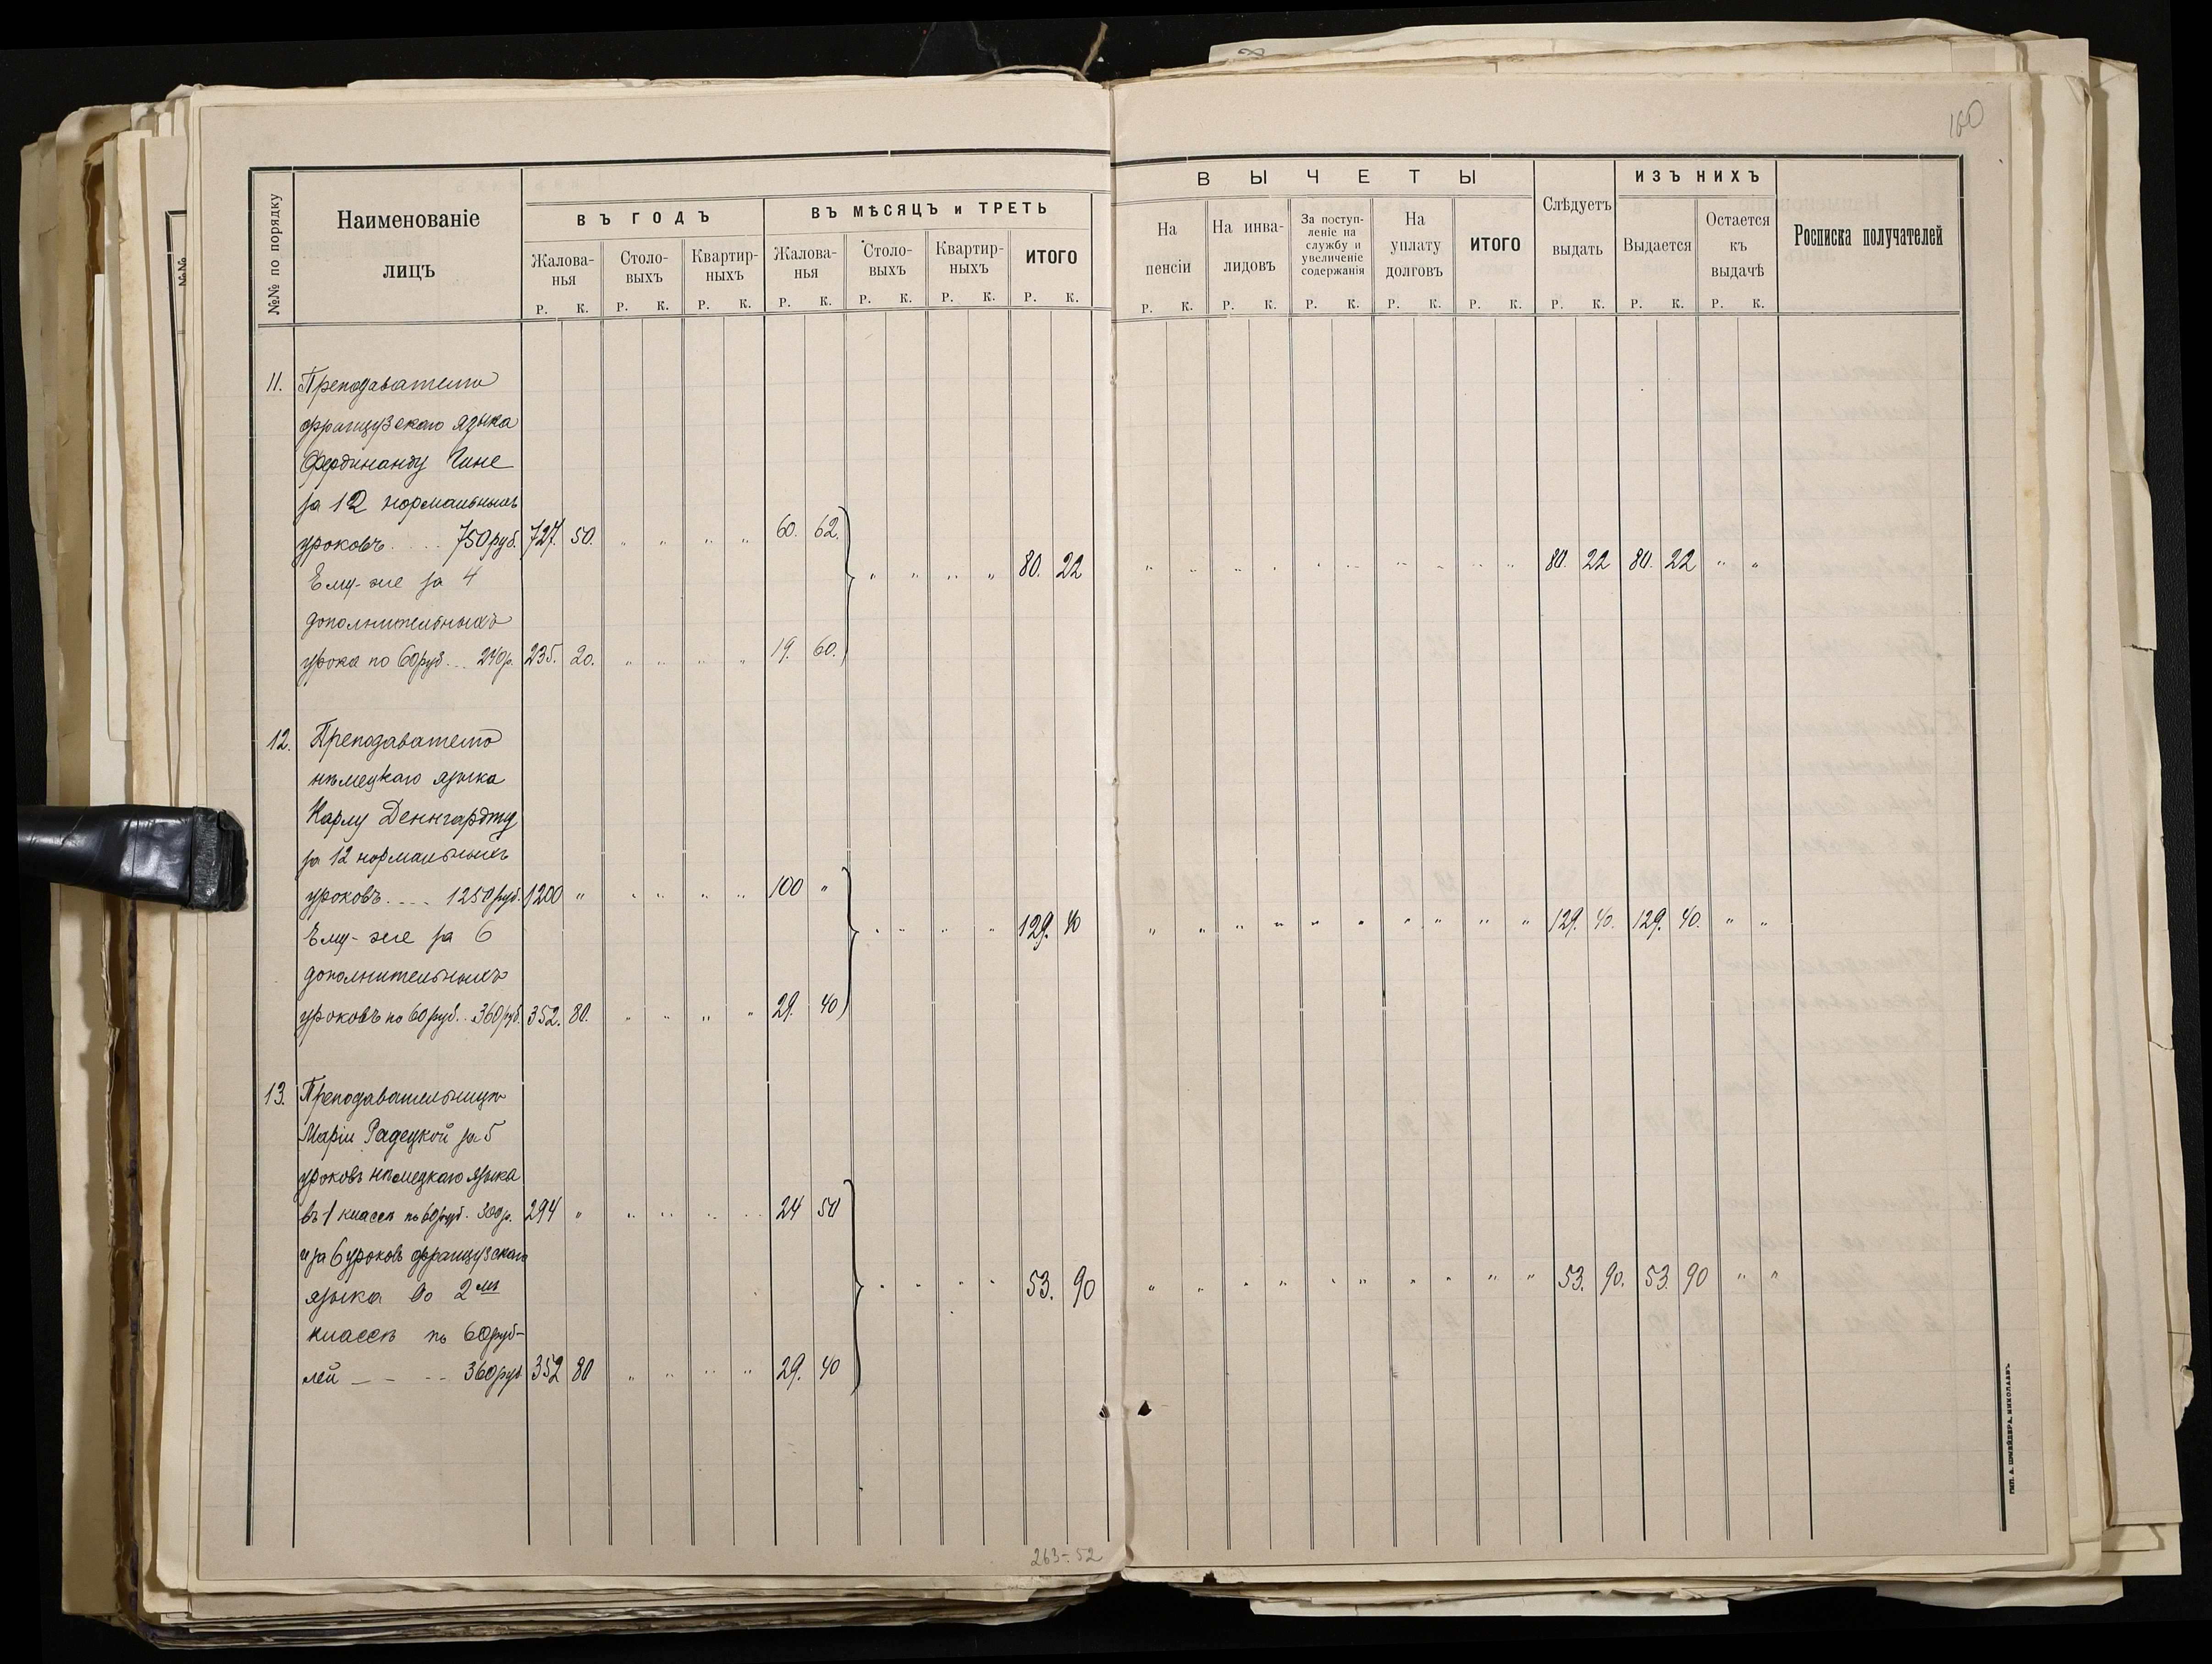 160
№№ по порядку
Наименованіе
лицъ
ВЪ ГОДЪ
ВЪ МѢСЯЦЪ и ТРЕТЬ
Жалова-
нья
Столо-
выхъ
Квартир-
ныхъ
Жалова-
нья
Столо-
выхъ
Квартир-
ныхъ
ИТОГО
Р. К. Р. К. Р. К. Р. К. Р. К. Р. К. Р. К.
ВЫЧЕТЫ
На
пенсіи
На инва-
лидовъ
За поступ-
леніе на
службу и
увеличеніе
содержанія
На
уплату
долговъ
ИТОГО
Слѣдуетъ
выдать
ИЗЪ НИХЪ
Выдается
Остается
къ
выдачѣ
Росписка получателей
Р. К. Р. К. Р. К. Р. К. Р. К. Р. К. Р. К. Р. К.
11. Преподавателю
французскаго языка
Фердинанду
за 12 нормальныхъ
уроковъ . . . . 750 руб. 727. 50. " " " " 60. 62.
" " " " 80. 22 " " " " " " " " " " 80. 22 80. 22 " "
Ему-же за 4
дополнительныхъ
урока по 60 руб. . . 240 р. 235. 20. " " " " 19. 60.
12. Преподавателю
нѣмецкаго языка
Карлу Деннгардту
за 12 нормальныхъ
уроковъ . . . . 1250 руб. 1200 " " " " " 100 "
" " " " 129. 40 " " " " " " " " " " 129. 40. 129. 40. " "
Ему-же за 6
дополнительныхъ
уроковъ по 60 руб. . . 360 руб. 352. 80. " " " " 29. 40
13. Преподавательницѣ
Маріи Радецкой за 5
уроковъ нѣмецкаго языка
въ 1 классѣ по 60 руб. 300 р. 294 " " " " " 24 50
и за 6 уроковъ французскаго
языка во 2мъ
" " " " 53. 90 " " " " " " " " " " 53. 90. 53. 90 " "
классѣ по 60 руб-
лей - - - - 360 руб. 352 80 " " " " 29. 40
263-52
ТИП. А. ШНЕЙДЕРА. НИКОЛАЕВЪ.
№№